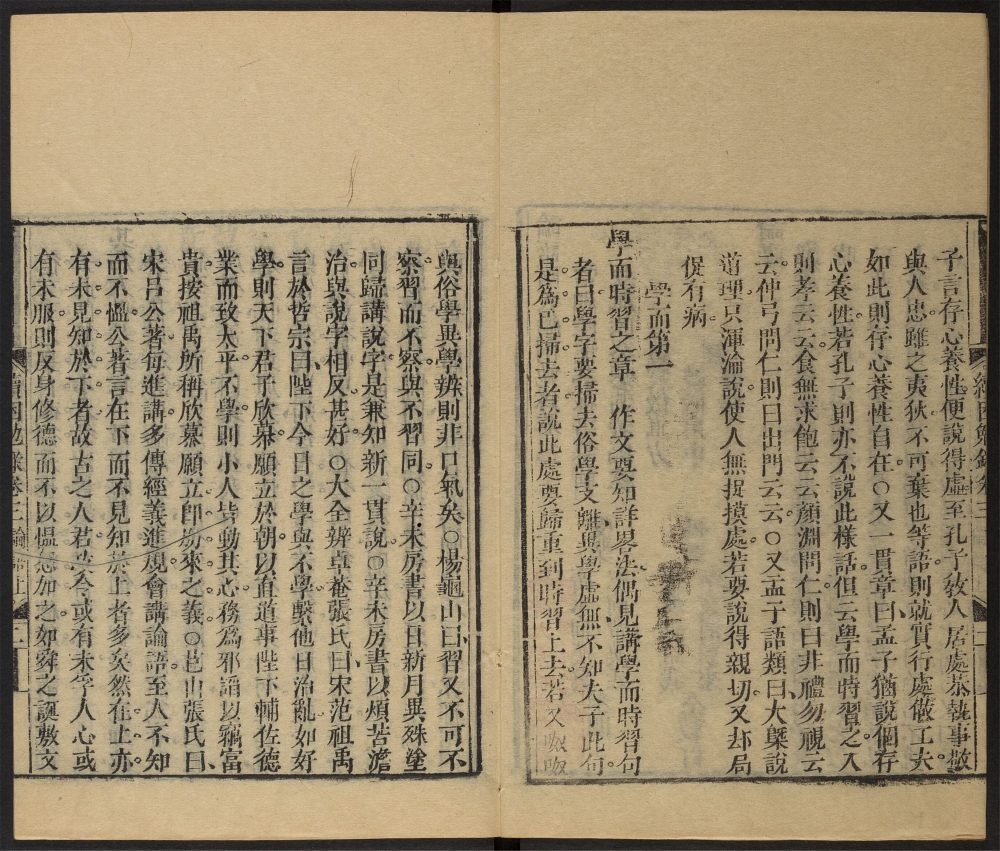 子言存心養性便說得虛至孔子敎人居處恭執事敬
與人忠雖之夷狄不可棄也等語則就實行處做工夫
如此則存心養性自在○又一貫章曰孟子猶說個存
心養性若孔子則亦不說此樣話但云學而時習之入
則孝云云食無求飽云云顔淵問仁則曰非禮勿視云
云仲弓問仁則曰出門云云○又孟子語類曰大槩說
道理只渾淪說使人無捉摸處若要說得親切又却局
促有病
學而第一
學而時習之章 作文要知詳畧法偶見講學而時習句
者曰學字要掃去俗學文雜異學虛無不知夫子此句
是爲已掃去者說此處要歸重到時習上去若又呶呶
與俗學異學辨則非口氣矣○楊龜山曰習又不可不
察習而不察與不習同○辛未房書以日新月異殊塗
同歸講說字是兼知新一貫說○辛未房書以煩苦澹
治與說字相反甚好○大全辨卓菴張氏曰宋范祖禹
言於哲宗曰陛下今日之學與不學繫他日治亂如好
學則天下君子欣慕願立於朝以直道事陛下輔佐德
業而致太平不學則小人皆動其心務爲邪謟以竊富
貴按祖禹所稱欣慕願立卽朋來之義○邑山張氏曰
宋呂公著每進講多傳經義進規會講論語至人不知
而不慍公著言在下而不見知於上者多矣然在上亦
有未見知於下者故古之人君令或有未孚人心或
有未服則反身修德而不以慍怒加之如舜之誕敷文
續困勉錄卷三 論語上 二